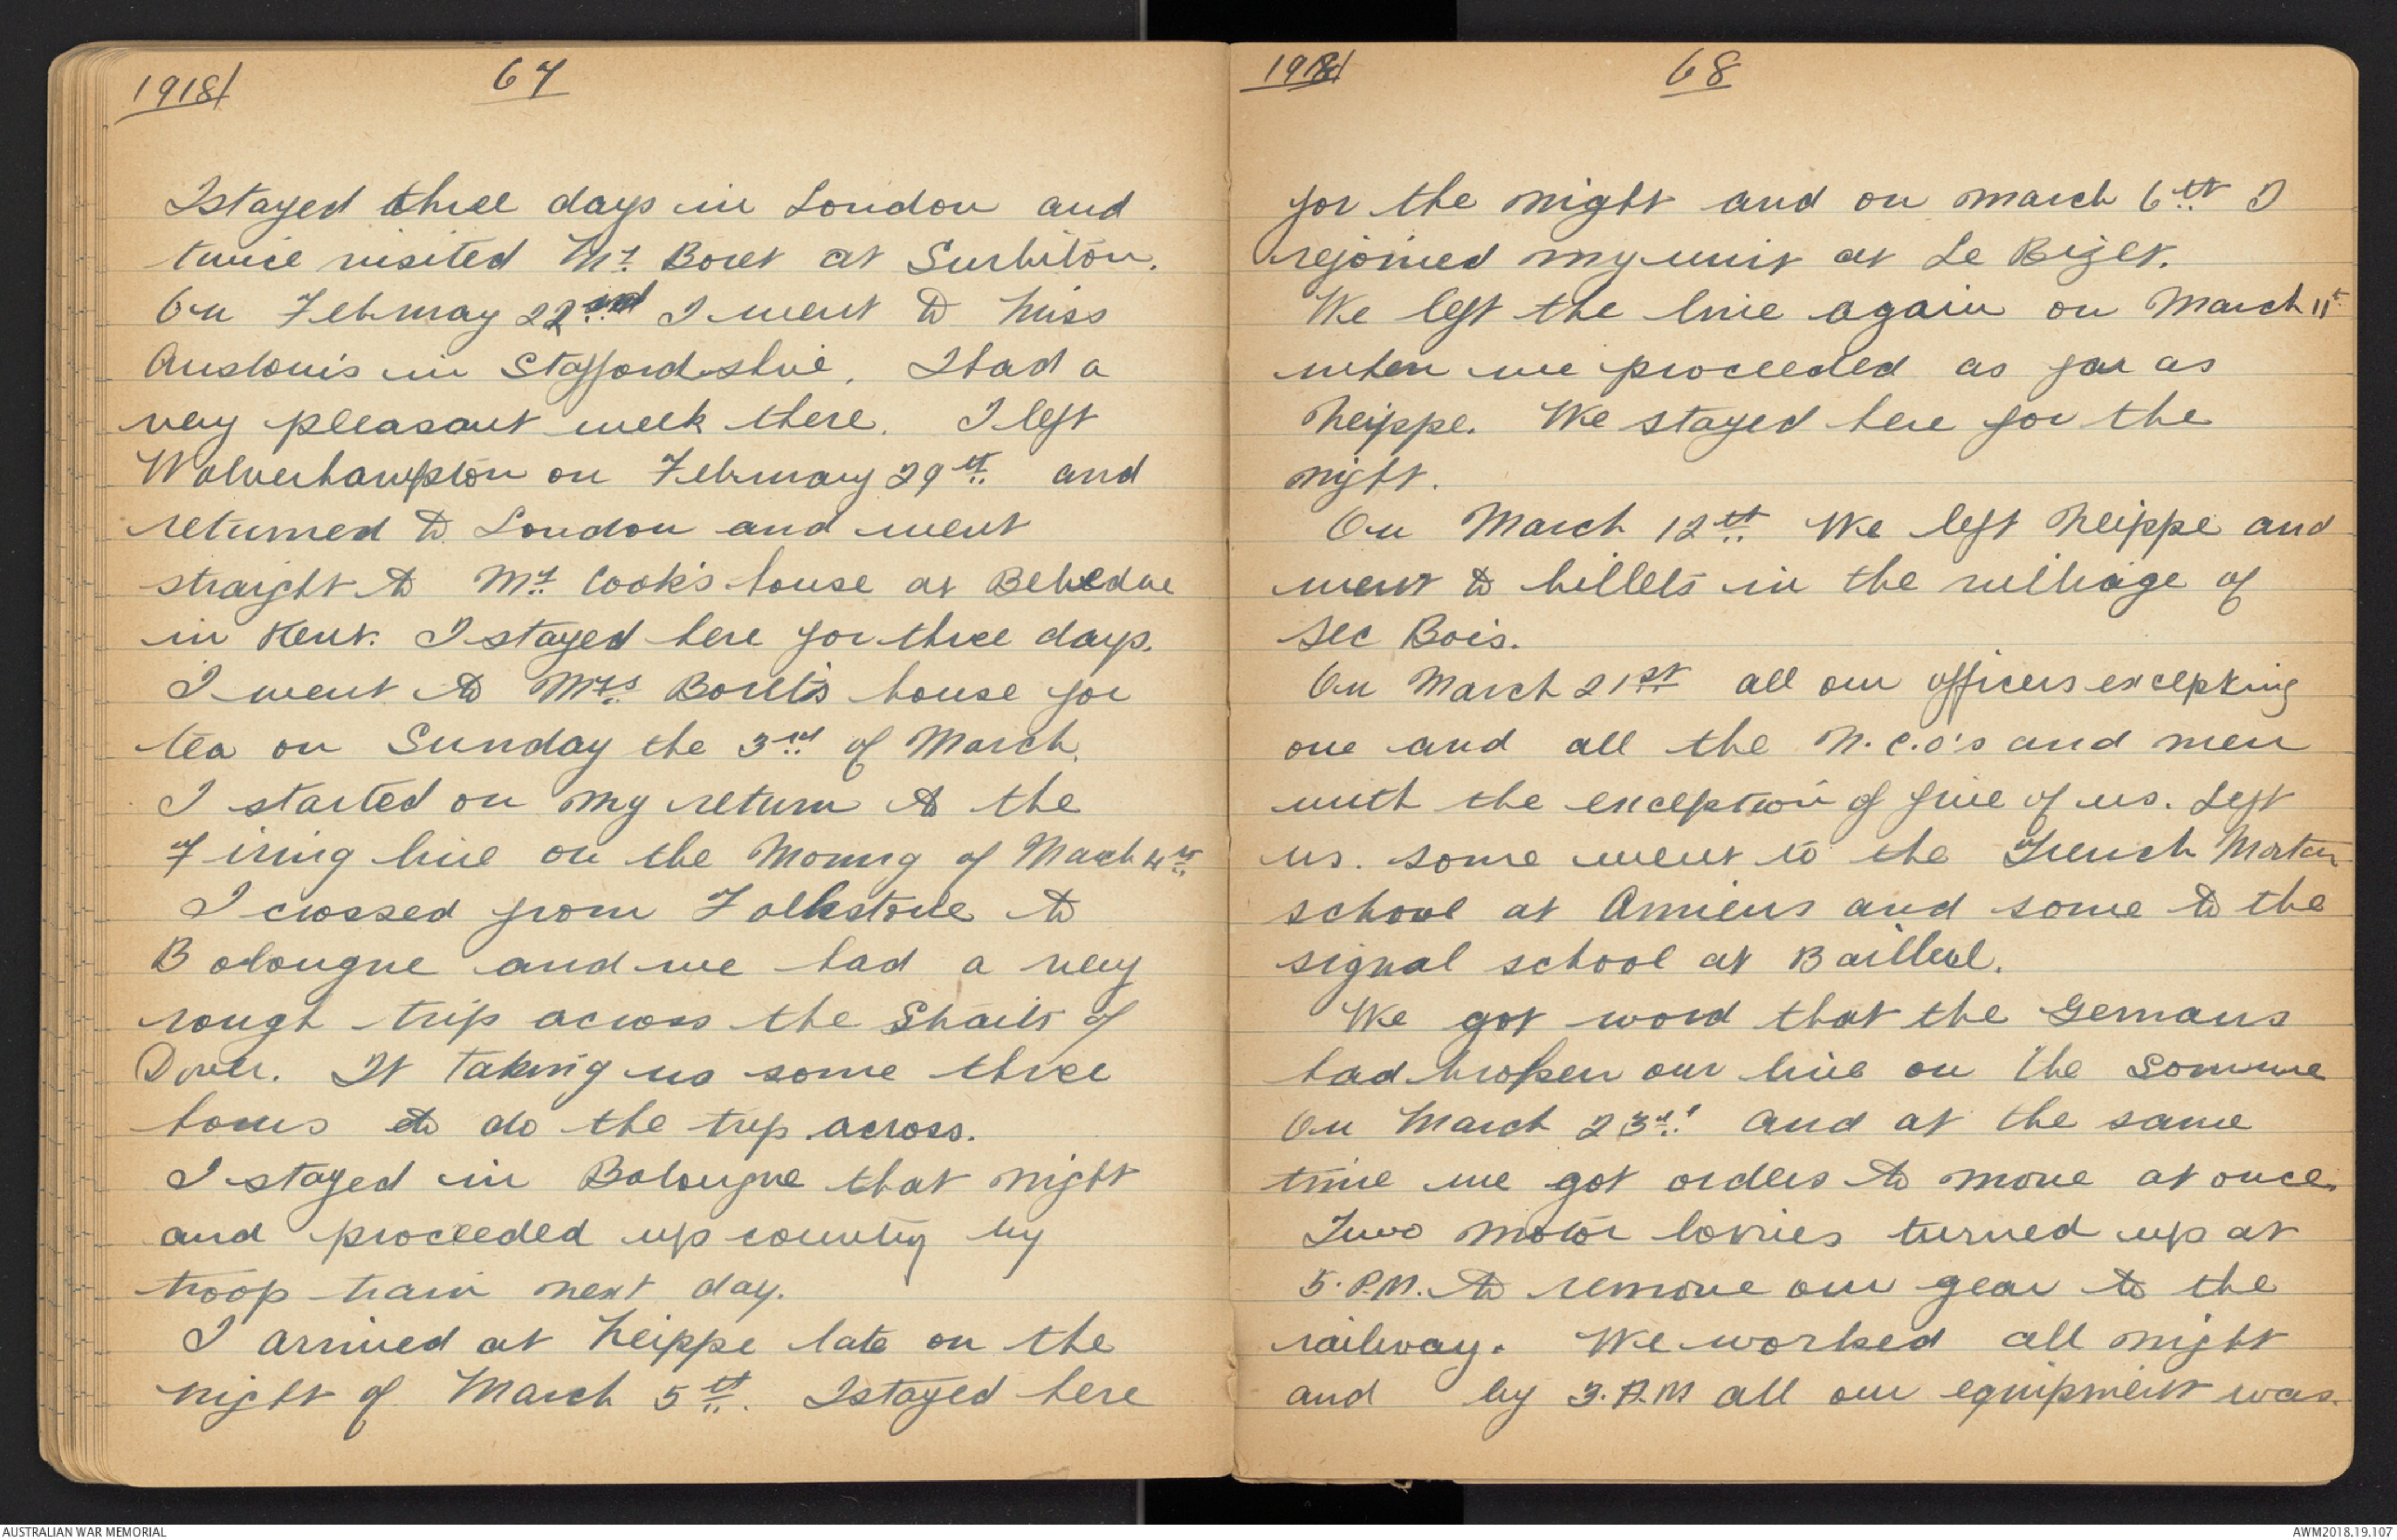 1918/
67
I stayed three days in London and
twice visited Mr. Boret at Surbiton.
On February 22nd I went to Miss
in Staffordshire. I had a
very pleasant week there. I left
Wolverhampton on February 29th and
returned to London and went
straight to Mr. Cook's house at Belvedere
in Kent. I stayed here for three days.
I went to Mrs. Boret's house for
tea on Sunday the 3rd of March.
I started on my return to the
Firing line on the Morning of March 4th.
I crossed from Folkstone to
Bolougne and we had a very
rough trip across the Straits of
Dover. It taking us some three
hours to do the trip across.
I stayed in Bolougne that night
and proceeded up country by
troop train next day.
I arrived at Neippe late on the
night of March 5th. I stayed here
1918/
68
for the night and on March 6th I
rejoined my unit at Le Bizet.
We left the line again on March 11th
when we proceeded as far as
Neippe. We stayed here for the
night.
On March 12th We left Neippe and
went to billets in the village of
Sec Bois.
On March 21st all our officers excepting
one and all the N.C.O's and men
with the exception of five of us. Left
us. some went to the Trench Mortar
school at Amiens and some to the
signal school at Bailleul.
We got word that the Germans
had broken our line on the Somme
On March 23rd and at the same
time we got orders to move at once.
Two motor lorries turned up at
5. P.M. to remove our gear to the
railway. We worked all night
and by 3. A.M all our equipment was.
AUSTRALIAN WAR MEMORIAL
AWM2018.19.107